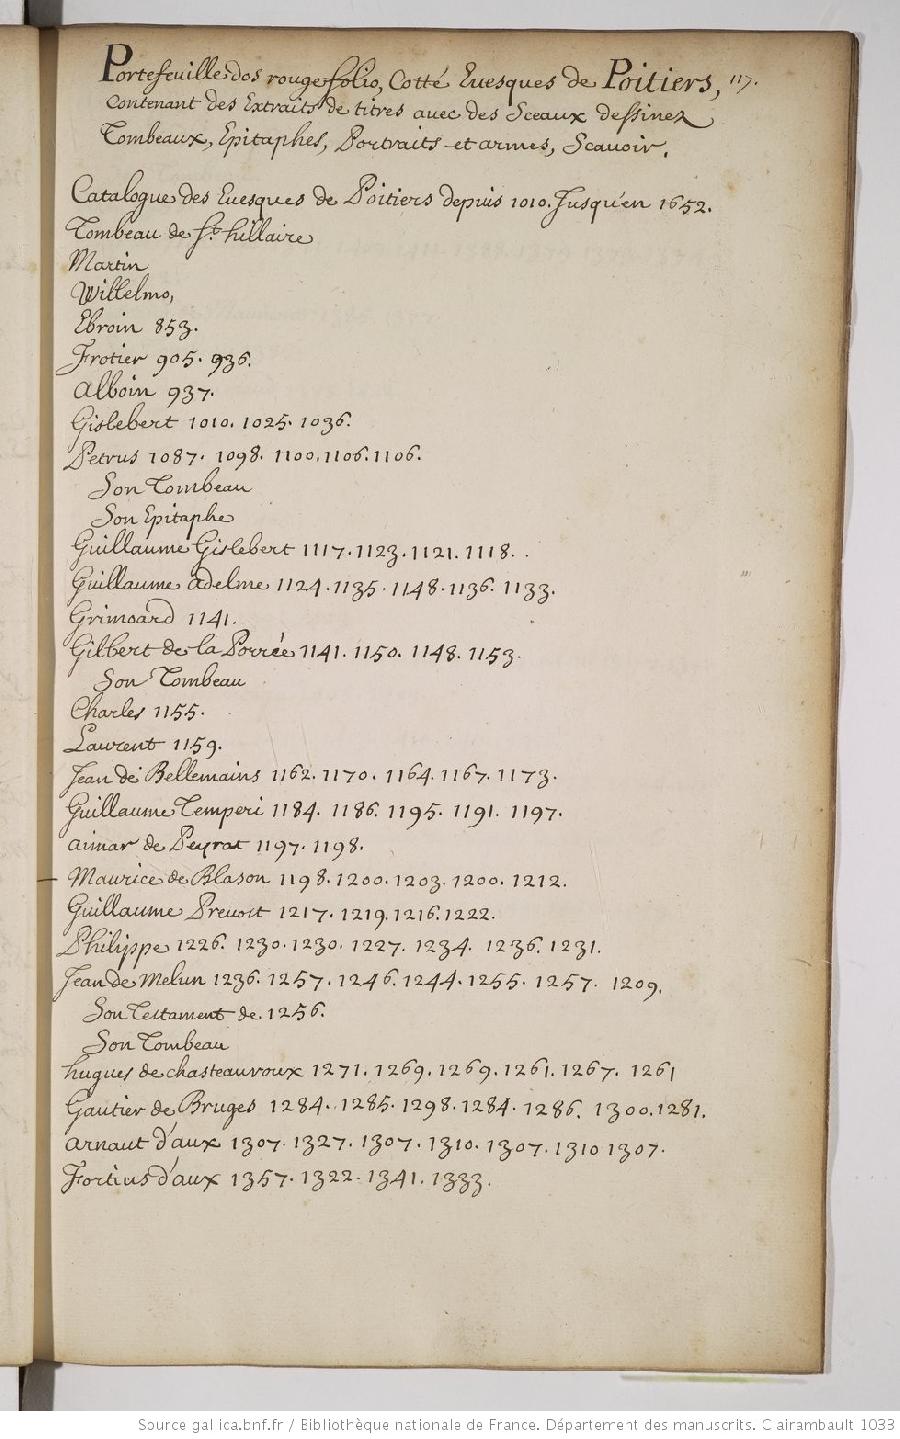 Portefeuille dos rouge folio, Cotté Euesques de Poitiers, 117.
Contenant des Extraits de titres avec des Sceaux dessinez
Tombeaux, Epitaphes, Portraits et armes, Scauoir.
Catalogue des Euesques de Poitiers depuis 1010. Jusqu'en 1652.
Tombeau de St. hillaire
Martin
Willelmo,
Ebroin 853.
Frotier 905. 936.
Alboin 937.
Gislebert 1010. 1025. 1036.
Petrus 1087. 1098. 1100. 1106. 1106.
Son Tombeau
Son Epitaphe
Guillaume Gislebert 1117. 1123. 1121. 1118.
Guillaume adelme 1124. 1135. 1148. 1136. 1133.
Grimoard 1141.
Gilbert de la Porrée 1141. 1150. 1148. 1153.
Son Tombeau
Charles 1155.
Laurent 1159.
Jean de Bellemains 1162. 1170. 1164. 1167. 1173.
Guillaume Temperi 1184. 1186. 1195. 1191. 1197.
aimar de Peyrat 1197. 1198.
Maurice de Blason 1198. 1200. 1203. 1200. 1212.
Guillaume Preuost 1217. 1219. 1216. 1222.
Philippe 1226. 1230. 1230. 1227. 1234. 1236. 1231.
Jean de Melun 1236. 1257. 1246. 1244. 1255. 1257. 1209.
Son Testament de 1256.
Son Tombeau
hugues de chasteauroux 1271. 1269. 1269. 1261. 1267. 1261
Gautier de Bruges 1284. 1285. 1298. 1284. 1286. 1300. 1281.
arnaut d'aux 1307 1327. 1307. 1310. 1307. 1310 1307.
Fortius d'aux 1357. 1322. 1341. 1333.
Source gallica.bnf.fr / Bibliothèque nationale de France. Département des manuscrits. Clairambault 1033